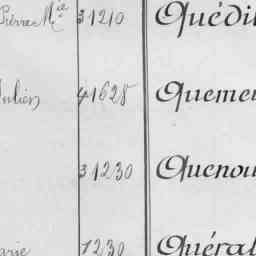 Pierre Mie 31210 Quédil
Julien 41628 Quemer
31230 Quenou
arie 1230 Quéral